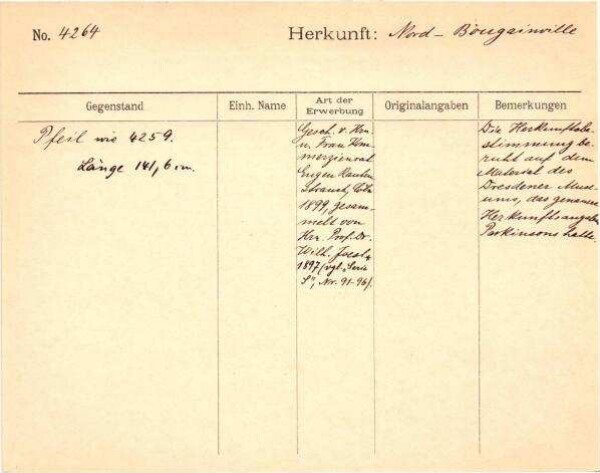 No. 4264
Herkunft: Nord-Bougainville
Gegenstand
Einh. Name
Art der Erwerbung
Originalangaben
Bemerkungen
Pfeil wie 4259.
Länge 141,6 cm.
Gesch. v. Hrn
u. Frau Kom-
merzienrat
Eugen Rauten
Strauch, Cöln
1899, gesam-
melt von
Hrn. Prof. Dr.
Wilh. Joest
1897 (vgl. Serie
Nr. 91-96).
Die Herkunftsbe-
stimmung be-
ruht auf dem
Material des
Dresdener Muse-
ums, das genaue
Herkunftsangaben
Parkinsons hatte.